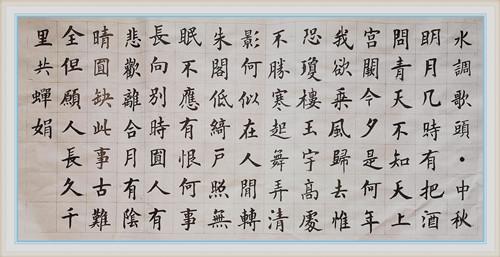 水調歌頭・中秋
明月几時有把酒
問青天不知天上
宮闕今夕是何年
我欲乘風歸去惟
恐瓊樓玉宇高處
不勝寒起舞弄清
影何似在人間轉
朱閣低綺戶照無
眠不應有恨何事
長向別時圓人有
悲歡離合月有陰
晴圓缺此事古難
全但願人長久千
里共蟬娟